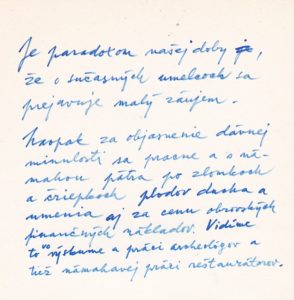 Je paradoxom našej doby je,
že o súčasných umelcoch sa
prejavuje malý záujem.
Naopak za objasnenie dávnej
minulosti sa pracne a s ná-
mahou pátra po zlomkoch
a čriepkoch plodov ducha a
umenia aj za cenu obrovských
finančných nákladov. Vidíme
to vo výskume a práci archeológov a
tiež námahavej práci reštaurátorov.